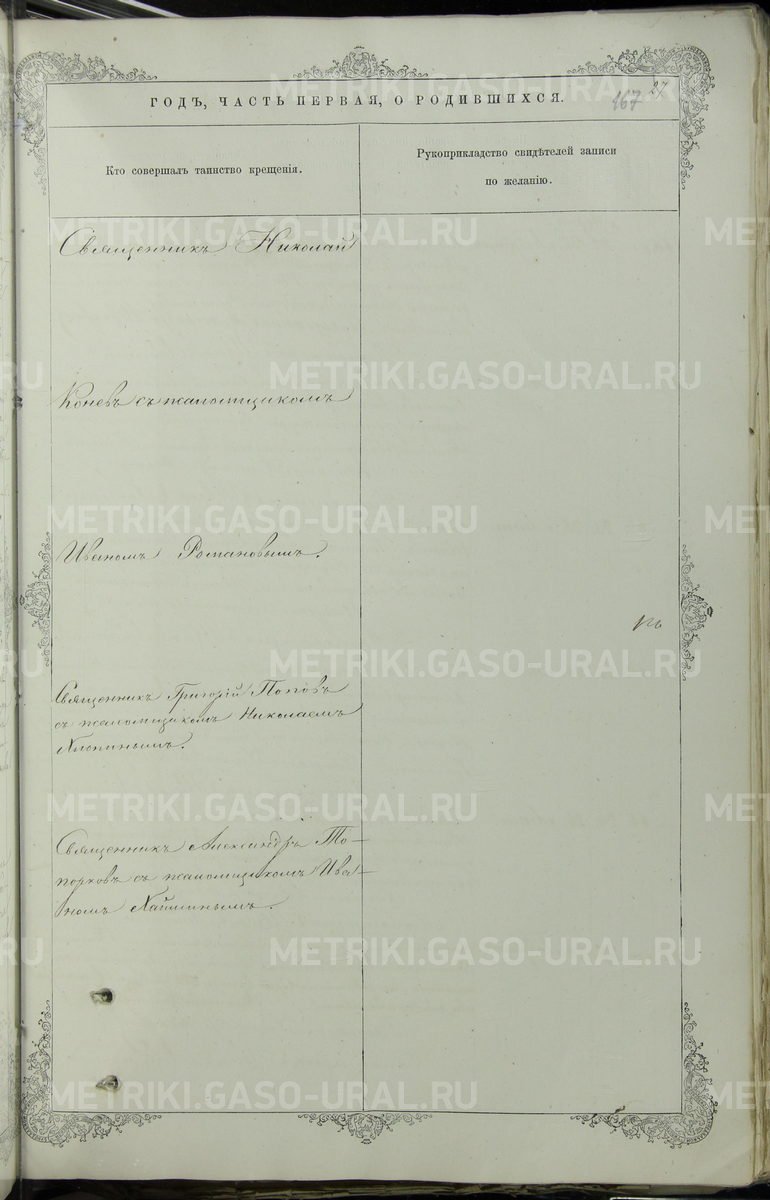 27
167
ГОДЪ, ЧАСТЬ ПЕРВАЯ, О РОДИВШИХСЯ.
Кто совершалъ таинство крещенія.
Рукоприкладство свидѣтелей записи
по желанію.
Священникъ Николай
Коневъ съ псаломщикомъ
Иваномъ Романовымъ.
Священникъ Григорій Поповъ
съ псаломщикомъ Николаемъ
Хлопинымъ.
Священникъ Александръ То-
порковъ съ псаломщикомъ Ива-
номъ
METRIKI.GASO-URAL.RU